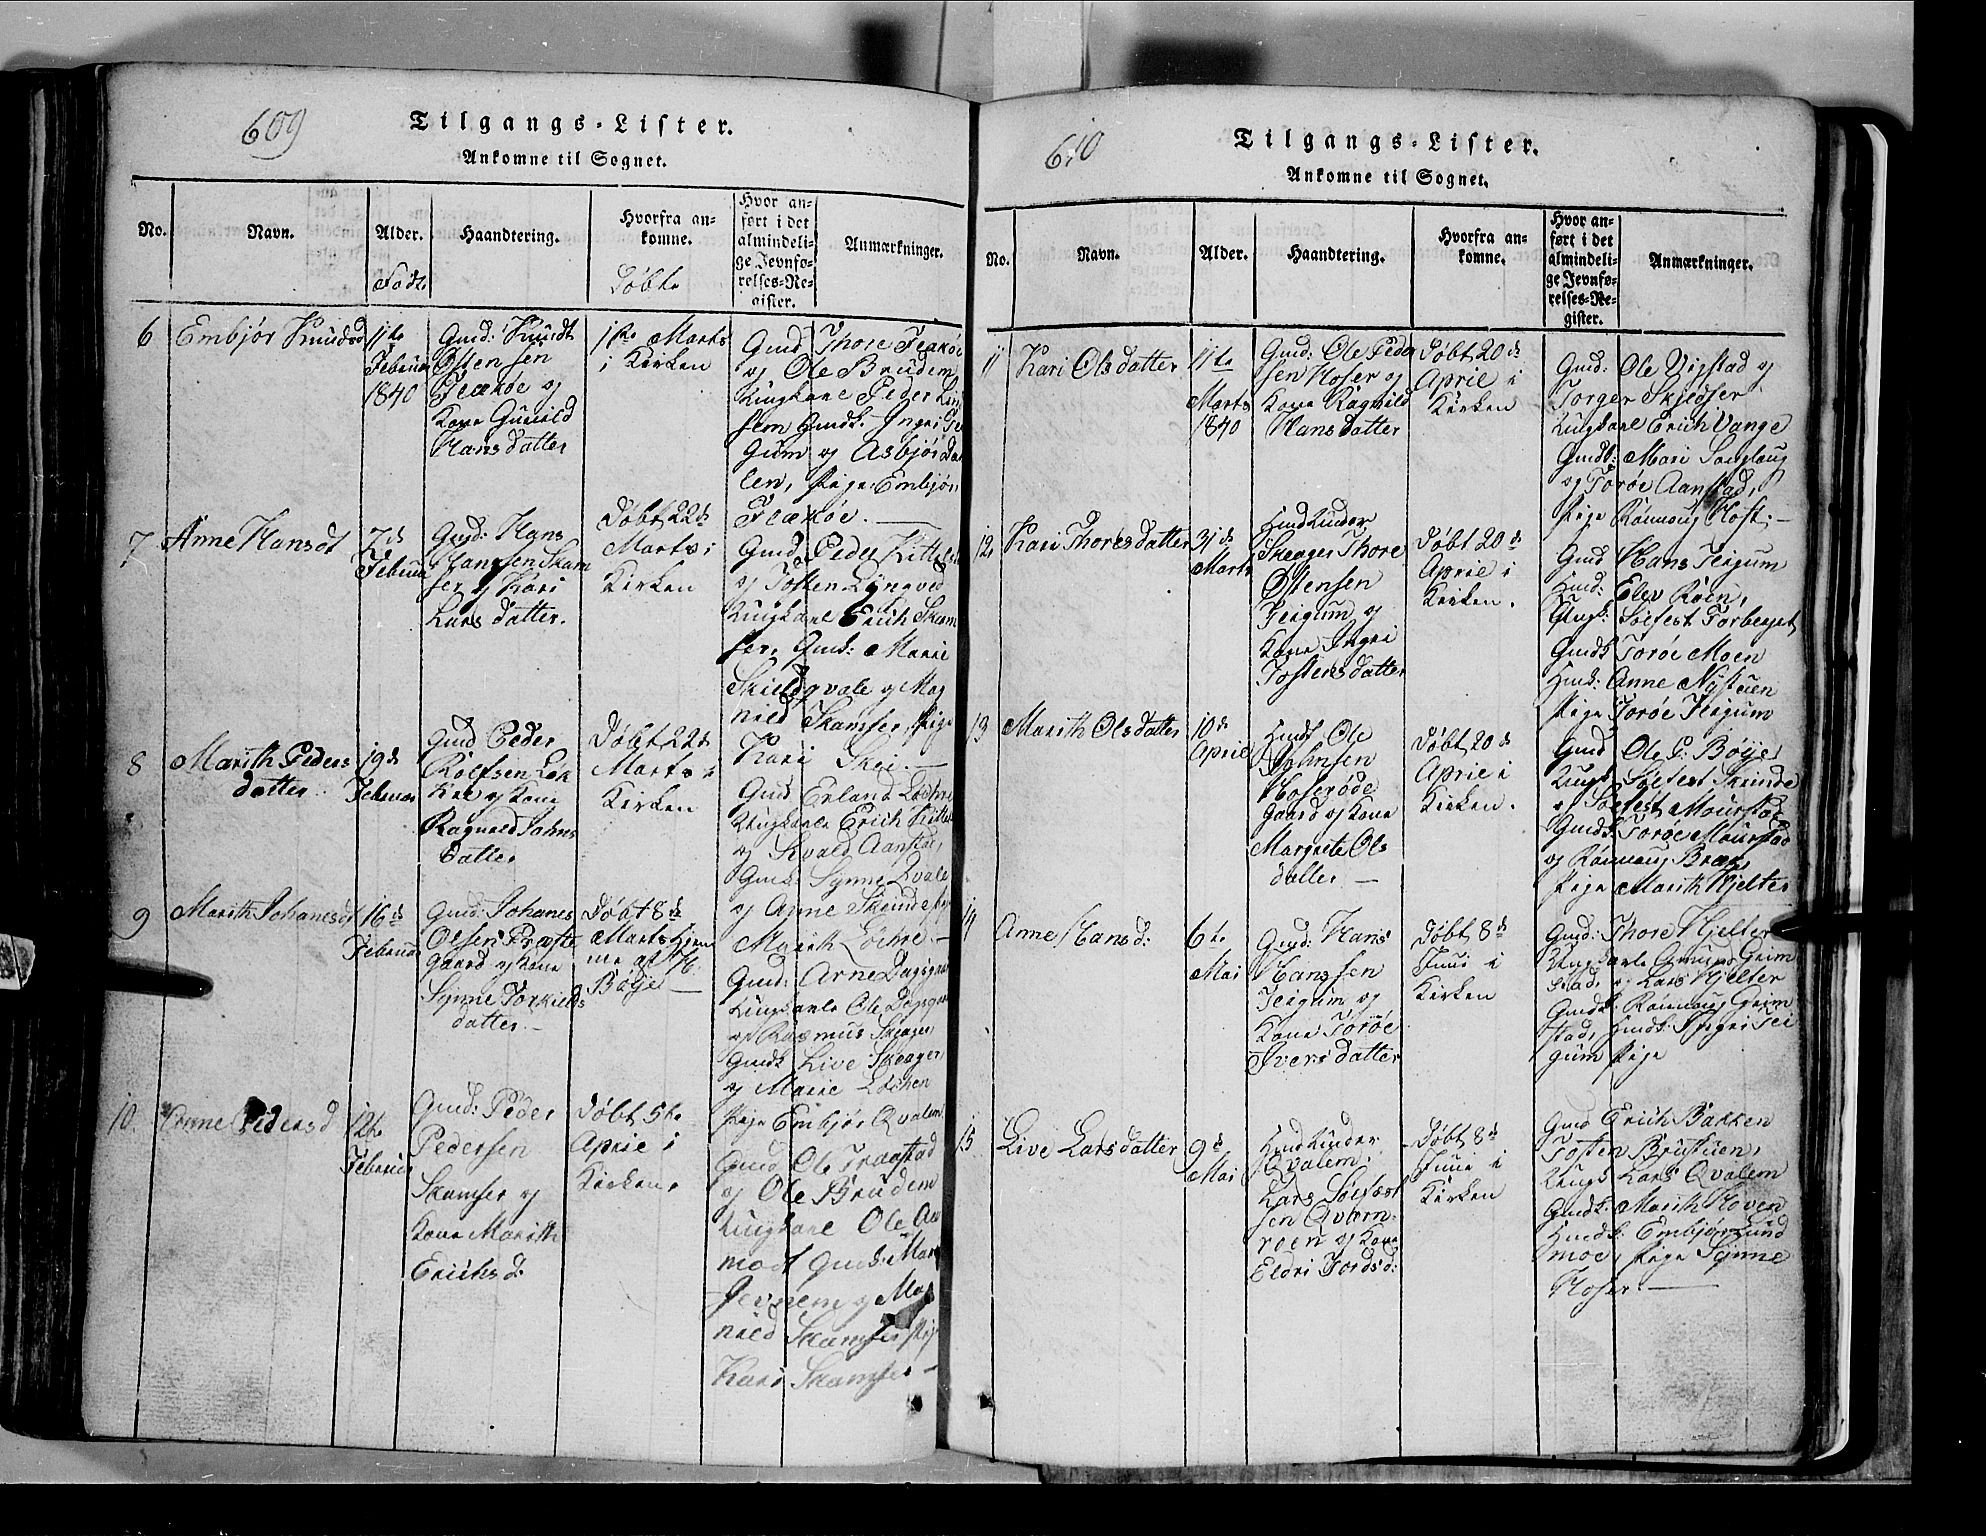 609
Tilgangs-Lister.
Ankomne til Sognet.
No.
Navn.
Alder.
Haandtering.
Hvorfra an-
komne.
Hvor an-
ført i det
almindeli-
ge Jevnfø-
relses-Re-
gister.
Anmærkninger.
Født
Døbt
6
Embjør Knudsd
11te
Februar
1840
Gmd: Knudt
Østensen
Flækøe og
Kone Gunild
Hansdatter
1ste Marts
i Kirken
Gmd Thore Flækøe
og Ole Brudem
Ungkarl Peder
Gmdk. Ingri
Gum og Asbjør
len, Pige Embjør
Flækøe.
7
Anne Hansdt
7d
Februar
Gmd: Hans
Hansen Skam
fer og Kari
Lars datter.
Døbt 22d
Marts i
Kirken
Gmd Peder
og Tosten Lyngved
Ungkarl Erich Skam
fer, Gmdk: Marie
Skieldqvale og Mag
nild Skamfer, Pige
Kari Skei.
8
Marith Peders
datter
19d
Februar
Gmd Peder
Rolfsen Løk
kre og Kone
Ragnild Johns
datter
Døbt 22d
Marts i
Kirken
Gmd Erland Løkre
Ungkarle Erich
og Sivald Aanstad,
Gmdk: Synne Qvale
og Anne
Marith Løkre.
9
Marith Johanesdt
16d
Februar
Gmd: Johanes
Olsen Præste
gaard og Kone
Synne Torkilds
datter.
Døbt 8de
Marts hjem
me af H.
Bøye
Gmd: Arne Dagsgaar
Ungkarle Ole Dagsgaar
og Rasmus Skrager
Gmdk Live Skrager
og Marie Løkken
Pige Embjør Qvalem
10
Anne Pedersd
12te
Februar
Gmd: Peder
Pedersen
Skamfer og
Kone Marith
Erichsd.
Døbt 5te
April i
Kirken.
Gmd Ole
og Ole Brudem
Ungkarl Ole Aa
modt Gmdk: Mari
og Mag
nild Skamfer, Pige
Kari Skamfer
610
Tilgangs-Lister.
Ankomne til Sognet.
No.
Navn.
Alder.
Haandtering.
Hvorfra an-
komne.
Hvor an-
ført i det
almindeli-
ge Jevnfø-
relses-Re-
gister.
Anmærkninger.
11
Kari Olsdatter
11te
Marts
1840
Gmd: Ole Peder
sen Hoser og
Kone Ragnild
Hansdatter
Døbt 20de
April i
Kirken
Gmd: Ole Vigstad og
Torger Skjedser
Ungkarl Erich Vange
Gmdk: Mari Sørlaug
og Torøe Aanstad,
Pige Rönnoug
12
Kari Thoresdatter
31d
Marts
Hmd under
Skrager Thore
Østensen
Teigum og
Kone Ingri
Tostensdatter
Døbt 20de
April i
Kirken.
Gmd Hans Teigum
Hmd: Elev Röen,
Ungk: Solfest Forberget
Gmdk Torøe Moen
Hmd: Anne Nystuen
Pige Torøe Teigum
13
Marith Olsdatter
10d
April
Hmd: Ole
Johnsen
Hoserøde
gaard og Kone
Margrete Ols
datter
Døbt 20de
April i
Kirken.
Gmd Ole P: Bøye,
Ungk Solfest
og Solfest Mourstad
Gmdk: Torøe Mourstad
og Rönnoug Bræk,
Pige Marith Hjelter
14
Anne Hansd:
6te
Mai
Gmd: Hans
Hansen
Teigum og
Kone Torøe
Ivers datter
Døbt 8de
Juni i
Kirken
Gmd: Thore Hjelter
Ungkarle Grim
stad, og Lars Hjelter
Gmdk. Rönnoug Grim
stad, Hmdk: Ingri Tei
gum Pige
15
Live Larsdatter
9d
Mai
Hmd under
Qvalem.
Lars Solfest
sen Qvern
roen og Kone
Eldri Jordsd:
Døbt 8de
Juni i
Kirken
Gmd Erich Bakken
Tosten Brustuen,
Ungk Lars Qvalem
Gmdk: Marith Hoven
Hmdk: Embjør Lund
moe, Pige Synne
Hoser.